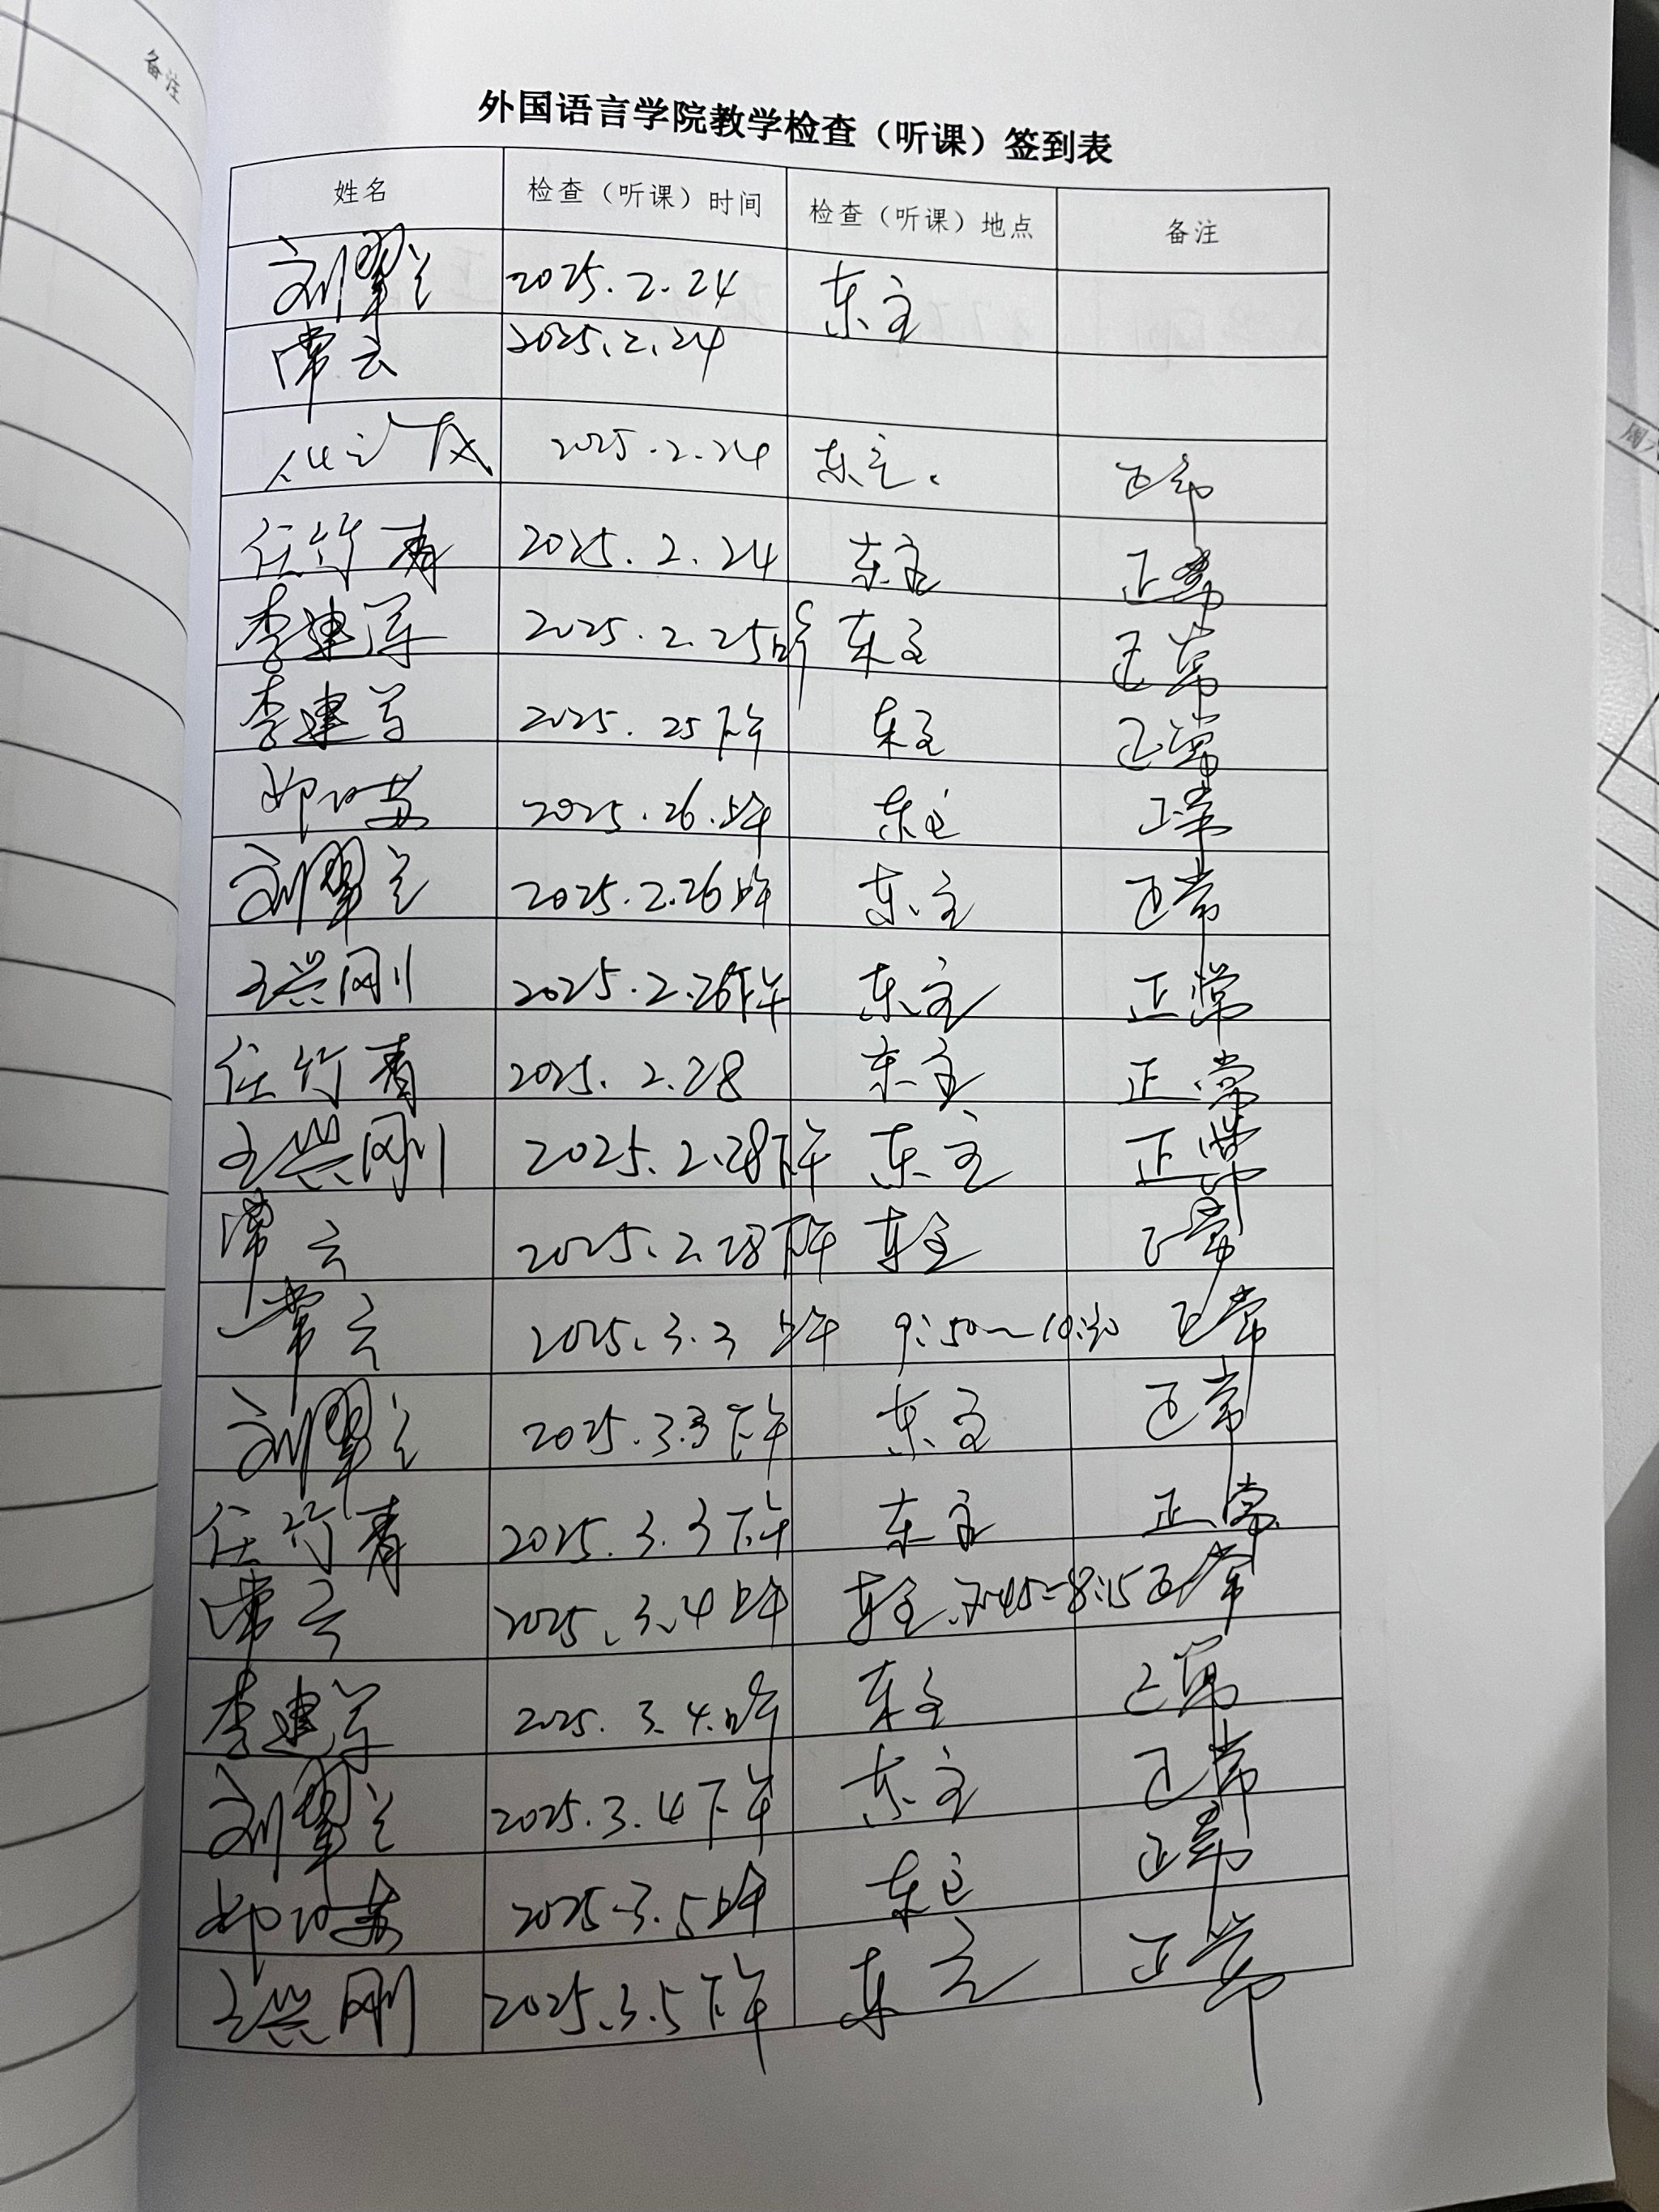 备注
外国语言学院教学检查（听课）签到表
姓名 检查（听课）时间 检查（听课）地点 备注
刘翠兰 2025.2.24 东主
常云 2025.2.24
2025.2.24 东主. 正常
任竹青 2025.2.24 东主 正常
李建军 2025.2.25上午 东主 正常
李建军 2025.25下午 东主 正常
2025.26.上午 东主 正常
刘翠兰 2025.2.26上午 东主 正常
王兴刚 2025.2.26下午 东主 正常
任竹青 2025.2.28 东主 正常
王兴刚 2025.2.28下午 东主 正常
常云 2025.2.28下午 东主 正常
常云 2025.3.3 上午 9:50~10:30 正常
刘翠兰 2025.3.3下午 东主 正常
任竹青 2025.3.3下午 东主 正常
常云 2025.3.4上午 东主.7:45-8:15 正常
李建军 2025.3.4.上午 东主 正常
刘翠兰 2025.3.4下午 东主 正常
2025.3.5上午 东主 正常
王兴刚 2025.3.5下午 东主 正常